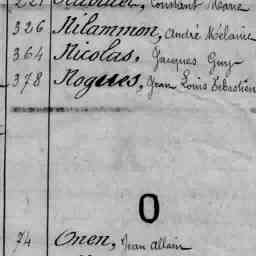 Constant Marie
326 Nilammon, André Mélanie
364 Nicolas, Jacques Guy
378 Nogues, Jean Louis Sébastien
O
74 Onen, Jean Allain